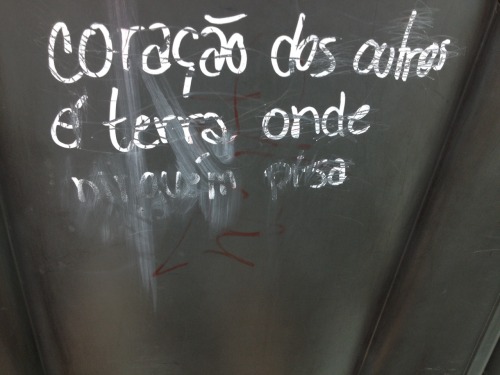 coração dos outros
é terra onde
ninguém pisa